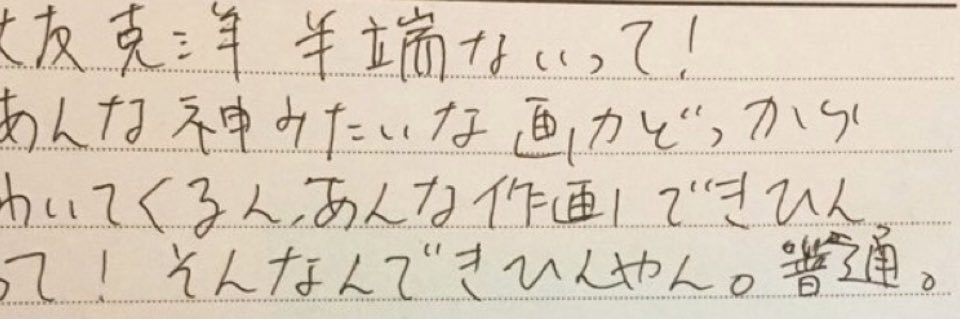 大友克洋 半端ないって!
あんな神みたいな画力どっから
わいてくるん、あんな作画できひん
って! そんなんできひんやん。普通。